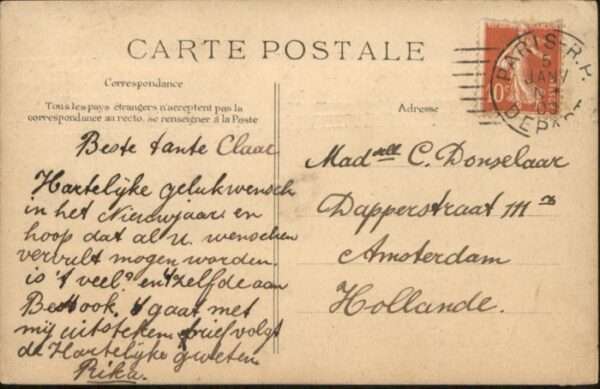 CARTE POSTALE
Correspondance
Tous les pays étrangers n'acceptent pas la
correspondance au recto, se renseigner à la Poste
Beste tante Claar
Hartelijke gelukwensch
in het Nieuwjaar en
hoop dat al U. wenschen
vervult mogen worden.
is 't veel? en 't zelfde aan
Bet ook. 't gaat met
mij uitsteken brief volgt
de Hartelijke groeten
Rika.
Adresse
Madelle C. Donselaar
Dapperstraat 111
Amsterdam
Hollande.
PARIS-R.P.
5
JANV
DEPART
10